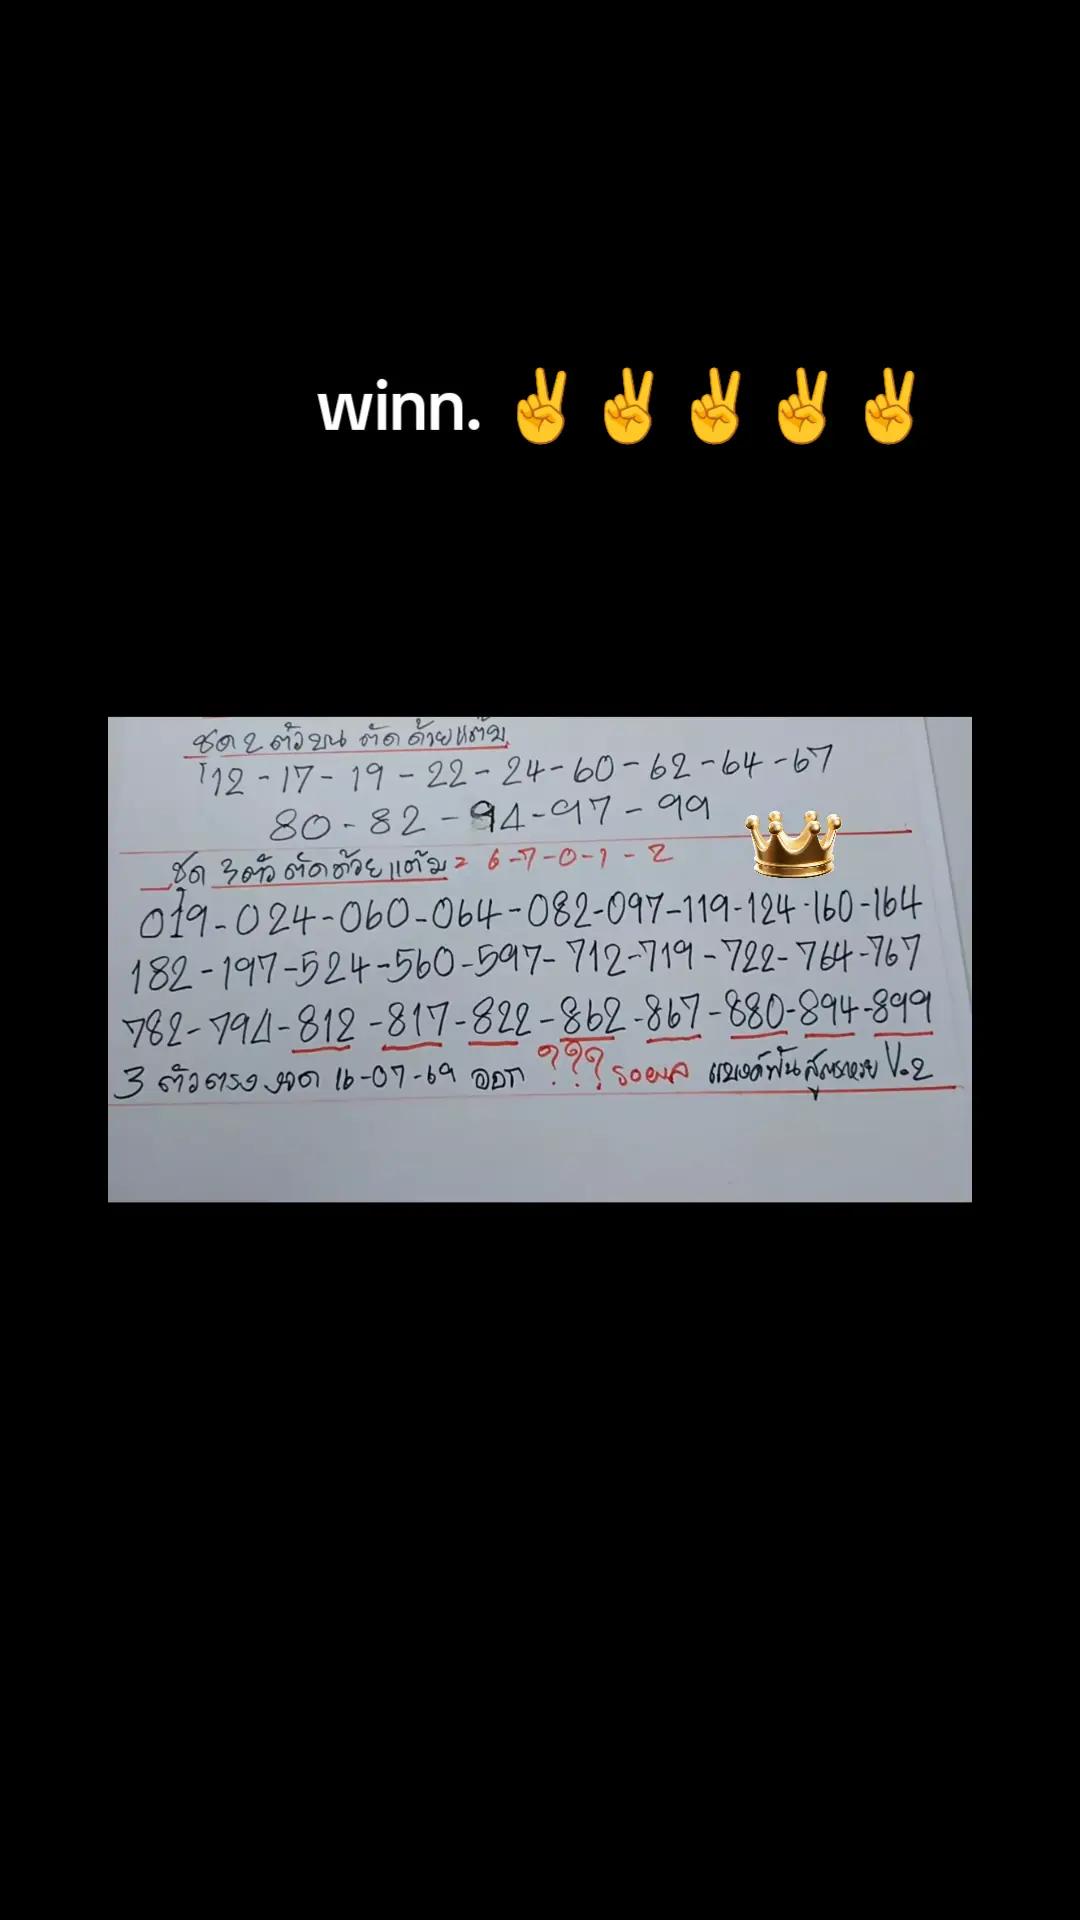 winn. ✌️✌️✌️✌️✌️
ชุด 2 ตัวบน ตัดด้วยแต้ม
12-17-19-22-24-60-62-64-67
80-82-94-97-99
ชุด 3 ตัว ตัดด้วยแต้ม = 6-7-0-1-2
019-024-060-064-082-097-119-124-160-164
182-197-524-560-597-712-719-722-764-767
782-794-812-817-822-862-867-880-894-899
3 ตัวตรง งวด 16-07-69 ออก ??? รอผล แบงค์พัน สูตรหวย V.2